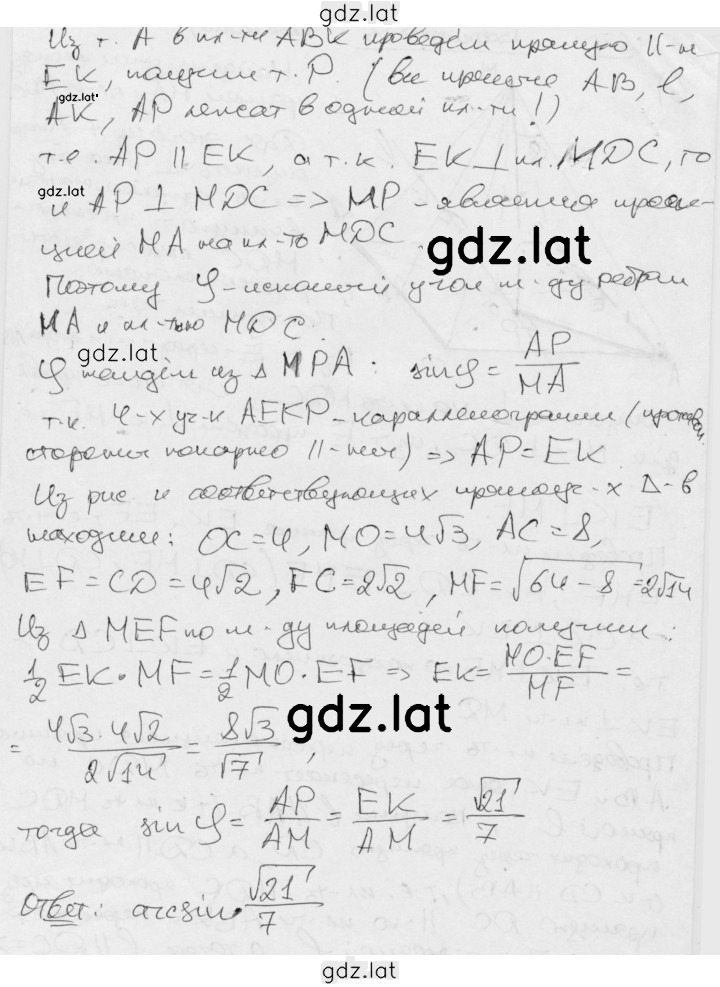 gdz.lat
Из т. А в пл-ти АВК проведём прямую ||-ю
ЕК, получим т. Р. (все прямые АВ, l,
gdz.lat
АК, АР лежат в одной пл-ти!)
т.е. АР || ЕК, а т.к. ЕК ⊥ пл. MDC, то
gdz.lat
и АР ⊥ MDC => МР - является проек-
цией МА на пл-ть MDC.
gdz.lat
Поэтому φ - искомый угол м-ду ребром
МА и пл-тью MDC.
gdz.lat
φ найдём из Δ МРА: sin φ = AP/MA
т.к. 4-х уг-к АЕКР - параллелограмм (противоп.
стороны попарно ||-ны) => АР = ЕК.
Из рис. и соответствующих прямоуг-х Δ-в
находим: OC = 4, MO = 4√3, AC = 8,
EF = CD = 4√2, FC = 2√2, MF = √64 - 8 = 2√14
Из Δ MEF по м-ду площадей получим:
1/2 EK · MF = 1/2 MO · EF => EK = MO·EF/MF =
= 4√3·4√2/2√14 = 8√3/√7,
gdz.lat
тогда sin φ = AP/AM = EK/AM = √21/7
Ответ: arcsin √21/7
gdz.lat